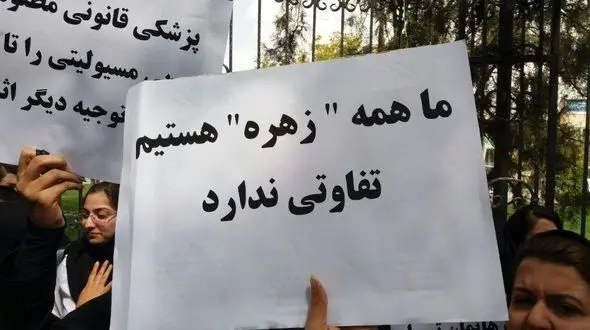 پزشکی قانونی
مسیولیتی را
توجیه دیگر
ما همه " زهره" هستیم
تفاوتی ندارد